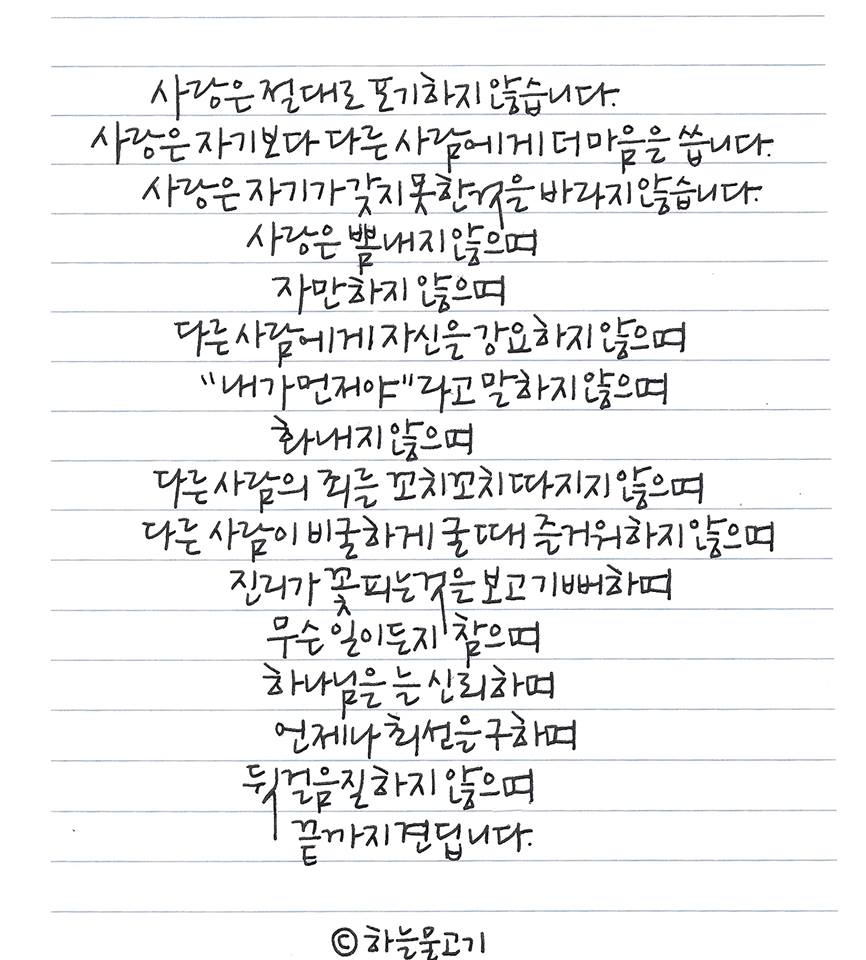 사랑은 절대로 포기하지 않습니다.
사랑은 자기보다 다른 사람에게 더 마음을 씁니다.
사랑은 자기가 갖지 못한 것을 바라지 않습니다.
사랑은 뽐내지 않으며
자만하지 않으며
다른 사람에게 자신을 강요하지 않으며
"내가 먼저야"라고 말하지 않으며
화내지 않으며
다른 사람의 죄를 꼬치꼬치 따지지 않으며
다른 사람이 비굴하게 굴 때 즐거워하지 않으며
진리가 꽃피는 것을 보고 기뻐하며
무슨 일이든지 참으며
하나님을 늘 신뢰하며
언제나 최선을 구하며
뒷걸음질하지 않으며
끝까지 견딥니다.
© 하늘물고기